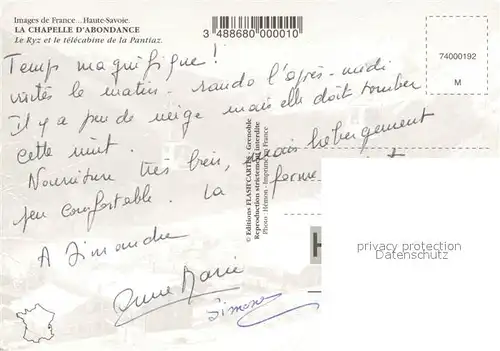 Images de France... Haute-Savoie.
LA CHAPELLE D'ABONDANCE
Le Ryz et le télécabine de la Pantiaz.
3 488680 000010
74000192
M
Temps magnifique !
le matin - rando l'après-midi
Il y a peu de neige mais elle doit tomber
cette nuit.
Nourriture très bien, mais hébergement
peu confortable. La ferme
A Dimanche
Anne Marie
Simone
© Editions FLASH'CARTES - Grenoble
Reproduction strictement interdite
Photo : Hémon - Imprimé en France
privacy protection
Datenschutz